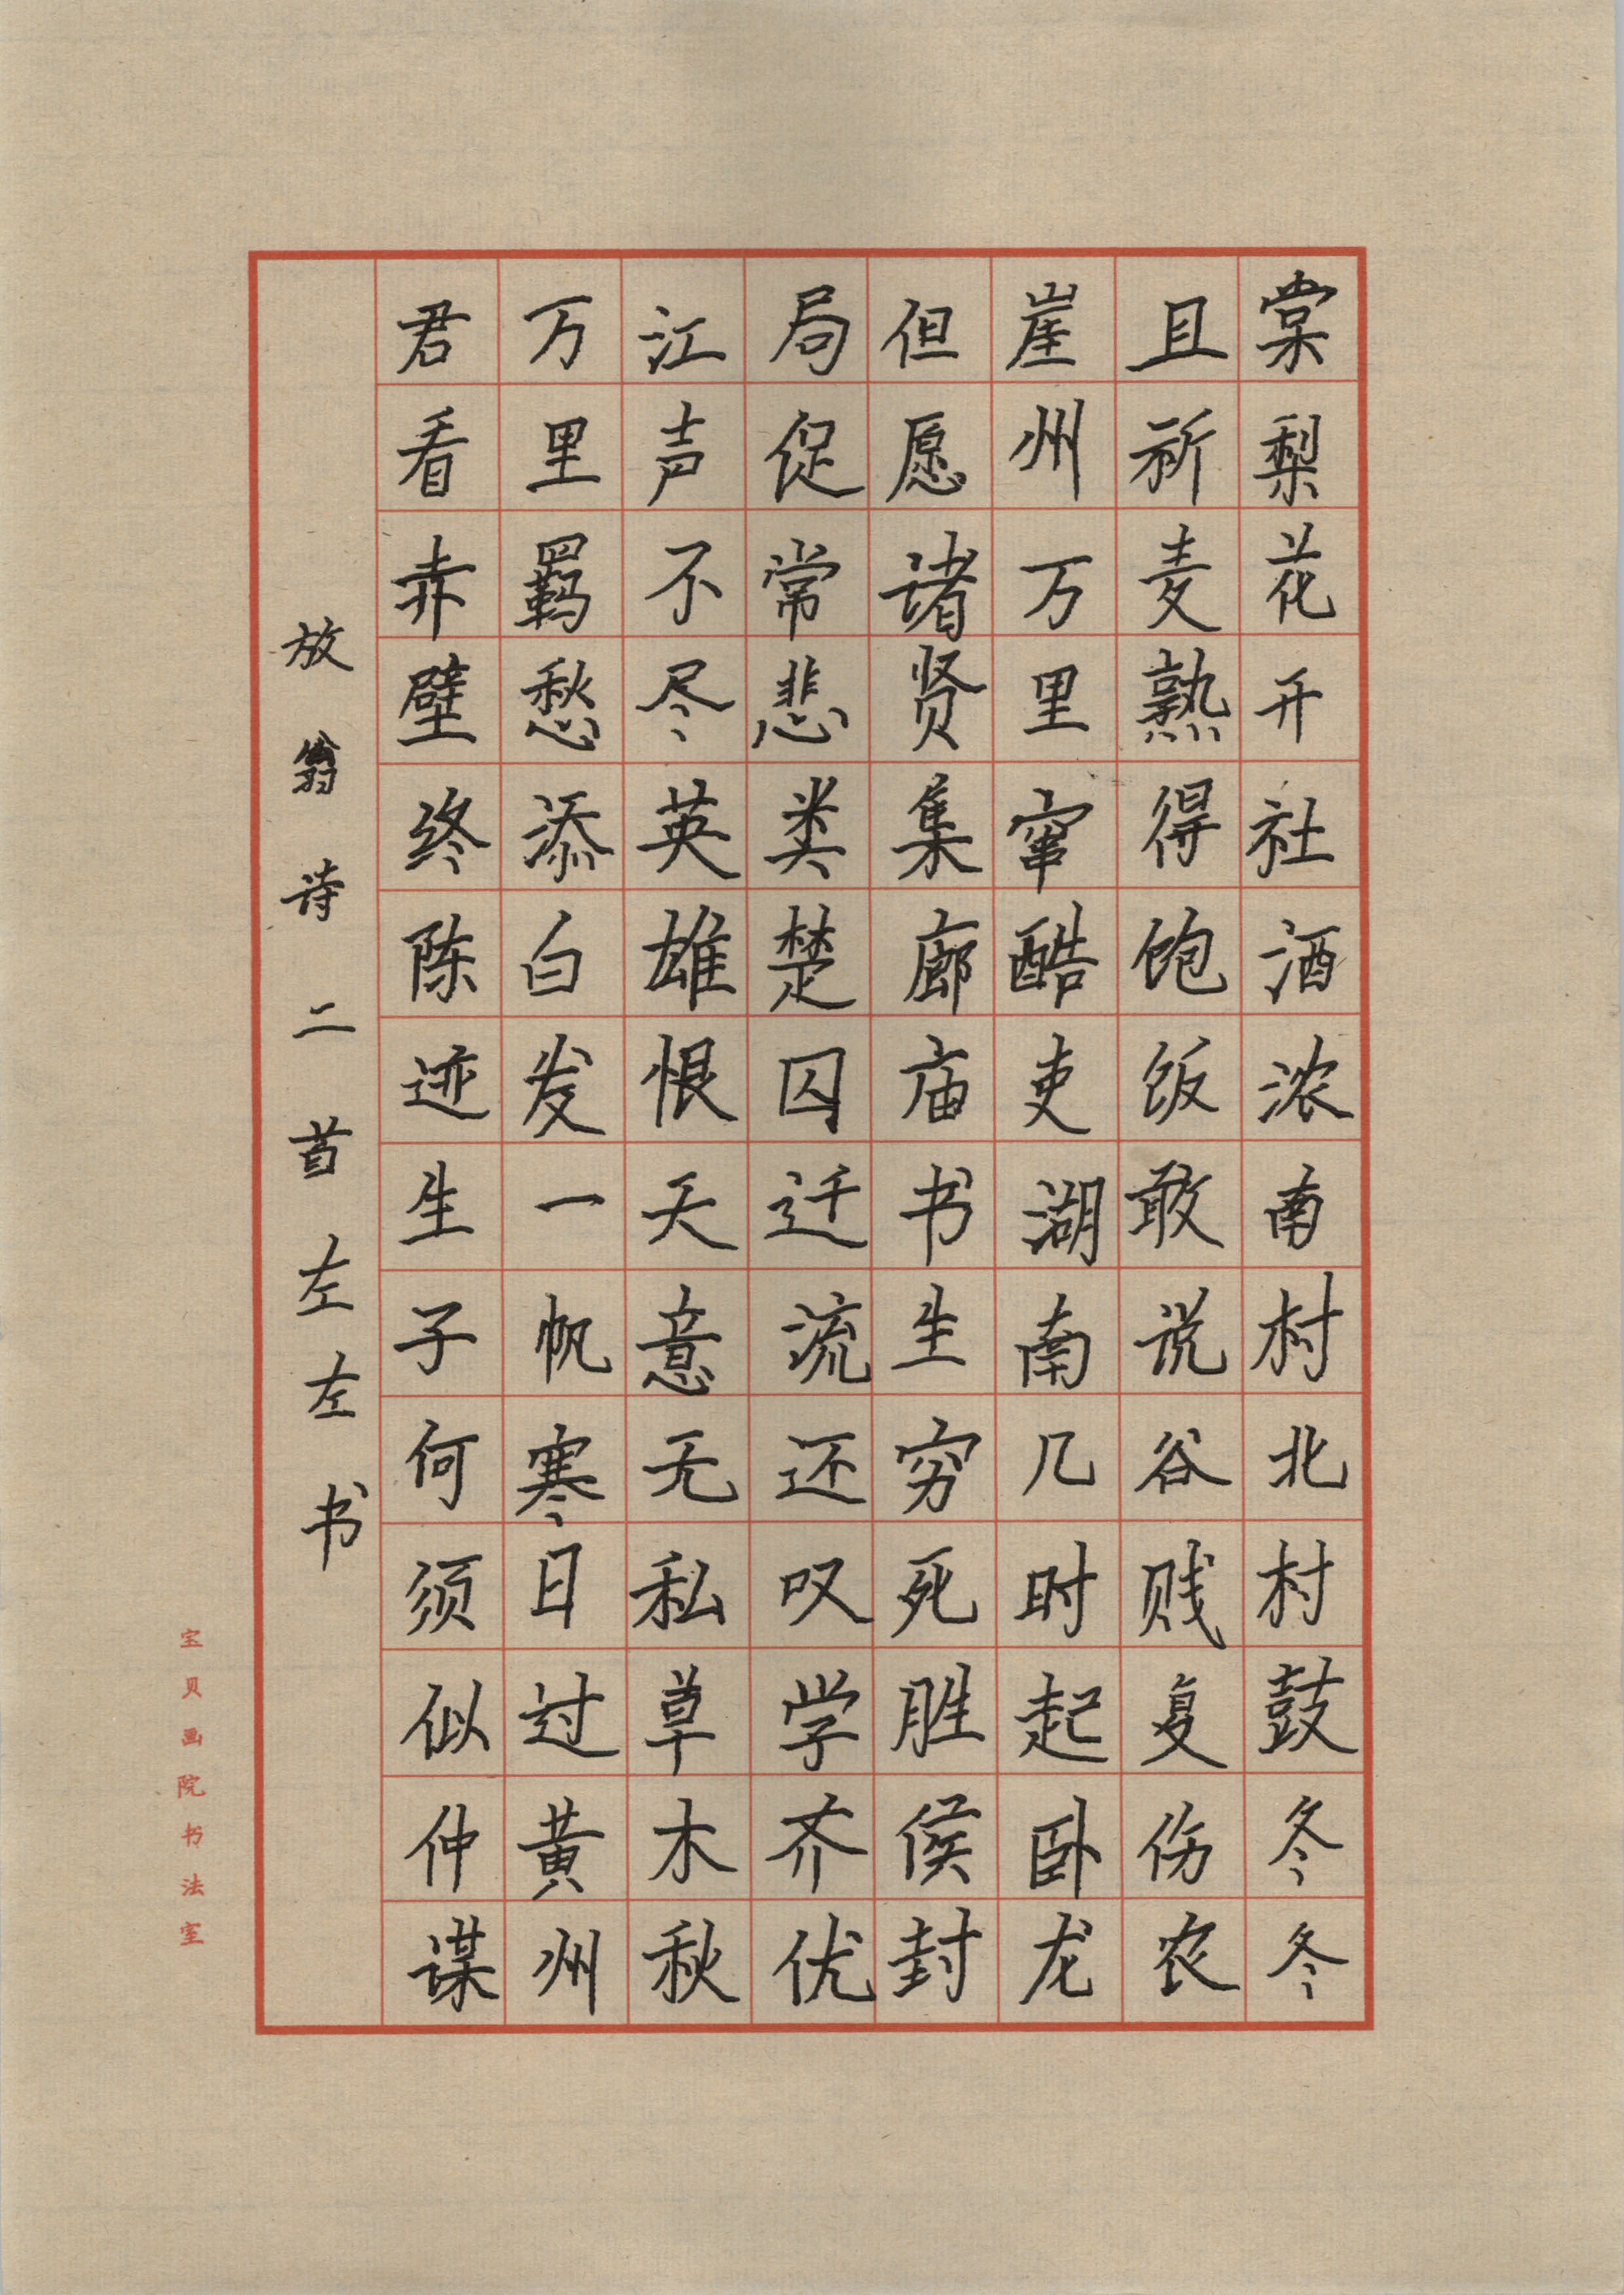 棠梨花开社酒浓南村北村鼓冬冬
且祈麦熟得饱饭敢说谷贱复伤农
崖州万里窜酷吏湖南几时起卧龙
但愿诸贤集廊庙书生穷死胜侯封
局促常悲类楚囚迁流还叹学齐优
江声不尽英雄恨天意无私草木秋
万里羁愁添白发一帆寒日过黄州
君看赤壁终陈迹生子何须似仲谋
放翁诗二首左左书
宝贝画院书法室